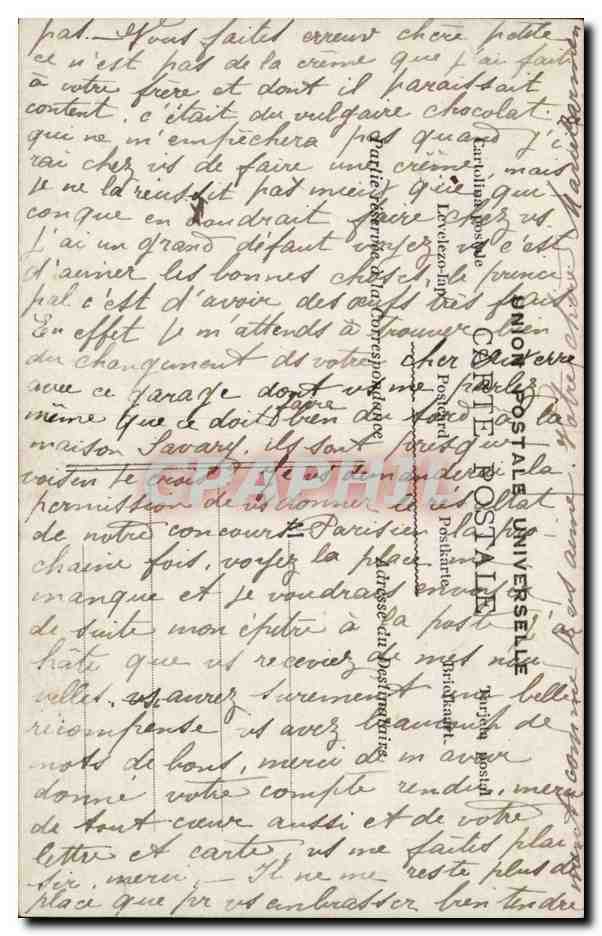 pas. — Vous faites erreur chère petite
ce n'est pas de la crème que j'ai fait
à votre frère et dont il paraissait
content, c'était du vulgaire chocolat.
qui ne m'empêchera pas quand j'i
rai chez vs de faire une crème, mais
je ne la réussit pas mieux que qui
conque en voudrait faire chez vs
J'ai un grand défaut voyez vs c'est
d'aimer les bonnes choses, le princi
pal c'est d'avoir des œufs très frais
En effet je m'attends à trouver bien
du changement ds votre cher Auxerre
avec ce garage dont vs me parlez
même que ce doit faire bien du tord à la
maison Savary, ils sont presque
voisin je crois? Je vs demanderai la
permission de vs donner le résultat
de notre concours Parisien la pro
chaine fois, voyez la place me
manque et je voudrais envoyer
de suite mon épître à la poste j'ai
hâte que vs receviez de mes nou
velles, vs aurez surement une belle
récompense vs avez beaucoup de
mots de bons, merci de m'avoir
donné votre compte rendu, merci
de tout cœur aussi et de votre
lettre et carte, vs me faites plai
sir, merci. — Il ne me reste plus de
place que pr vs embrasser bien tendre
ment comme je vs aime. Votre chère Marie
UNION POSTALE UNIVERSELLE
CARTE POSTALE
Postcard
Postkarte
Briefkaart
Cartolina postale
Levelezo-lap
Tarjeta postal
Partie réservée à la Correspondance
Adresse du Destinataire
CPAPHIL